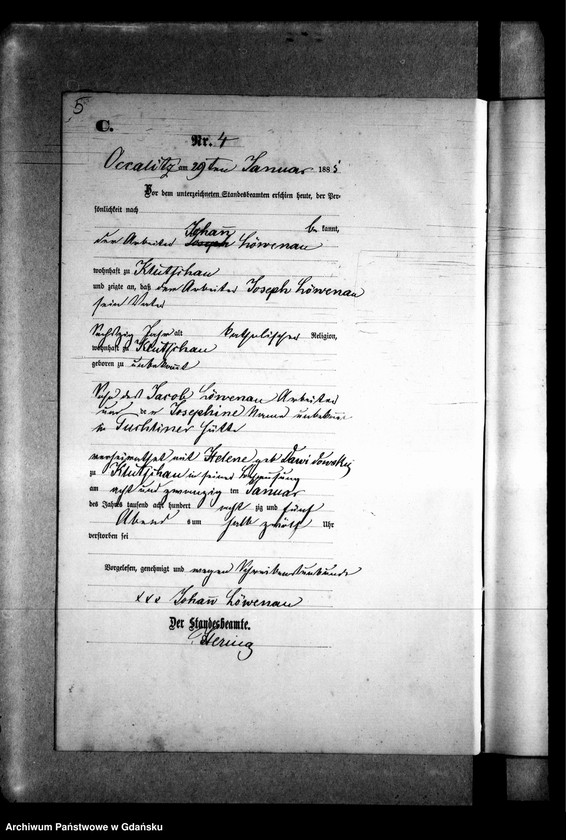 5
C.
Nr. 4
Occalitz am 29ten Januar 1885
Vor dem unterzeichneten Standesbeamten erschien heute, der Per-
sönlichkeit nach
Johann be kannt,
der Arbeiter Joseph Löwenau
wohnhaft zu Klutschau
und zeigte an, daß der Arbeiter Joseph Löwenau
sein Vater
Sechszig Jahr alt katholischer Religion,
wohnhaft zu Klutschau
geboren zu unbekannt
Sohn des Jacob Löwenau Arbeiter
und der Josephine Name unbekannt
Hütte
verheirathet mit Helene geb Dawidowski
zu Klutschau in seiner Behausung
am acht und zwanzig ten Januar
des Jahres tausend acht hundert acht zig und fünf
Abend s um halb zwölf Uhr
verstorben sei
Vorgelesen, genehmigt und wegen Schreibensunkunde
xxx Johann Löwenau
Der Standesbeamte.
Hering
Archiwum Państwowe w Gdańsku